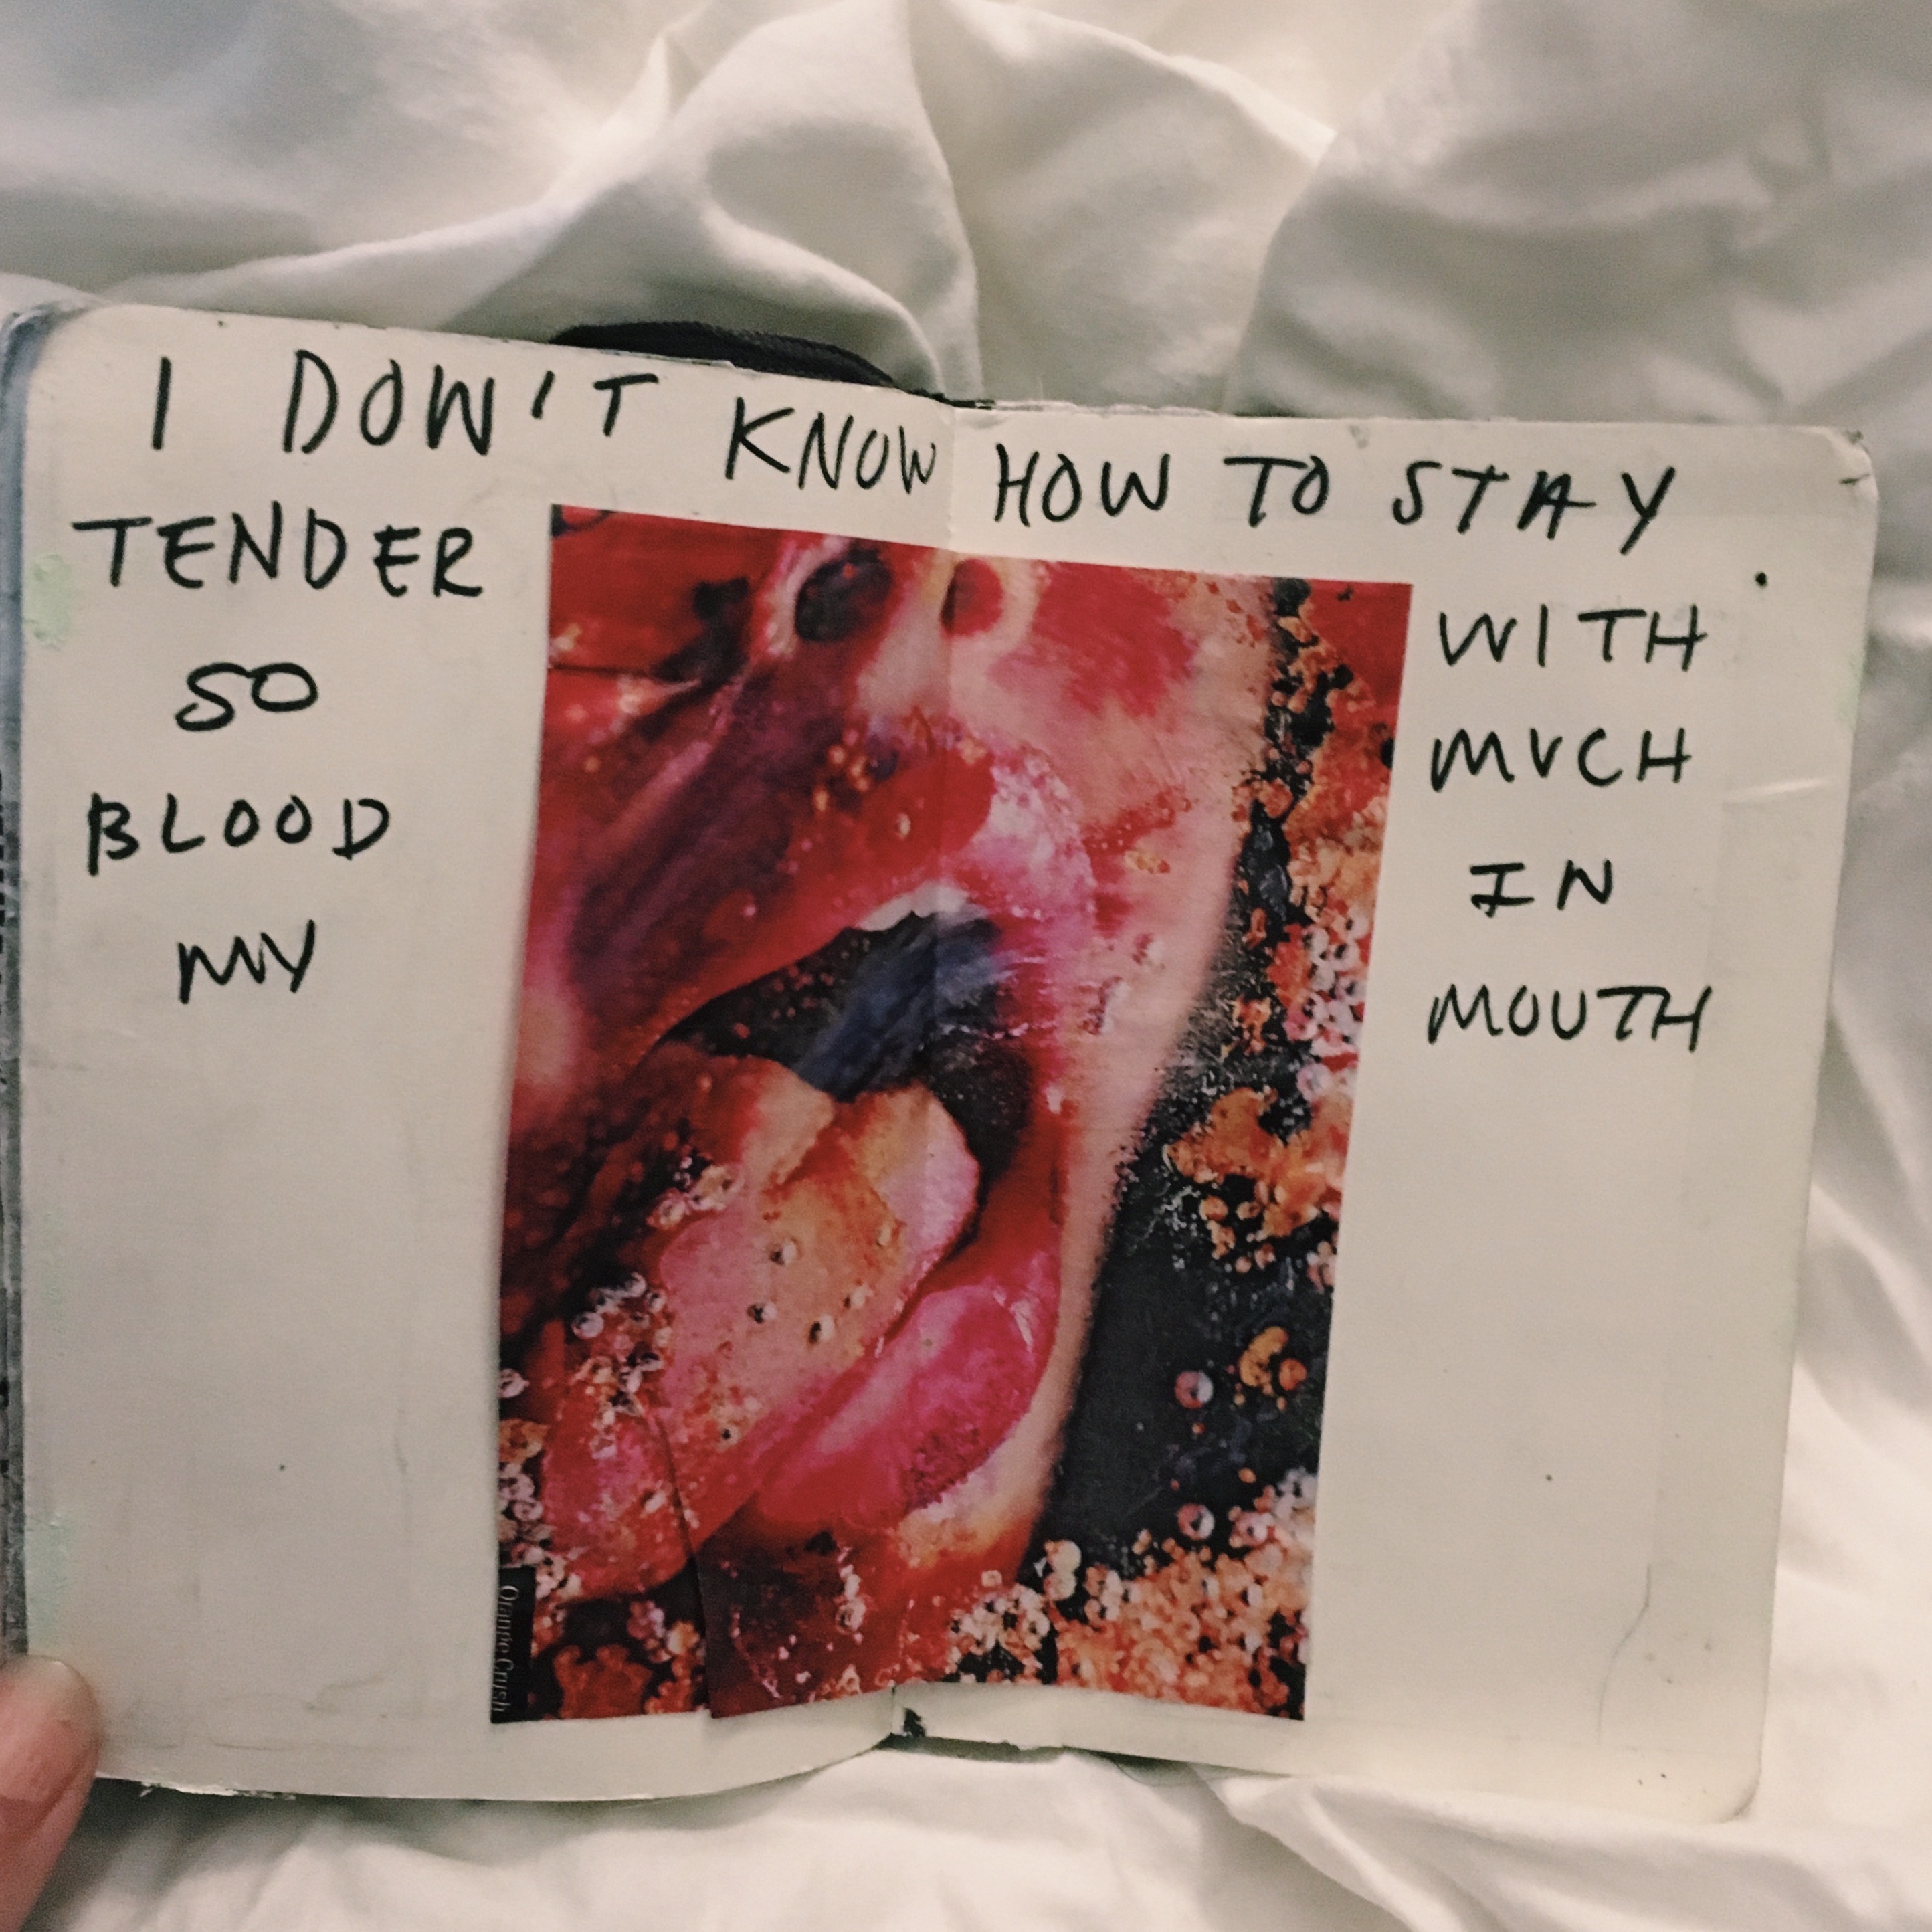 I DON'T KNOW HOW TO STAY
TENDER WITH
SO MUCH
BLOOD IN
MY MOUTH
Orange Crush